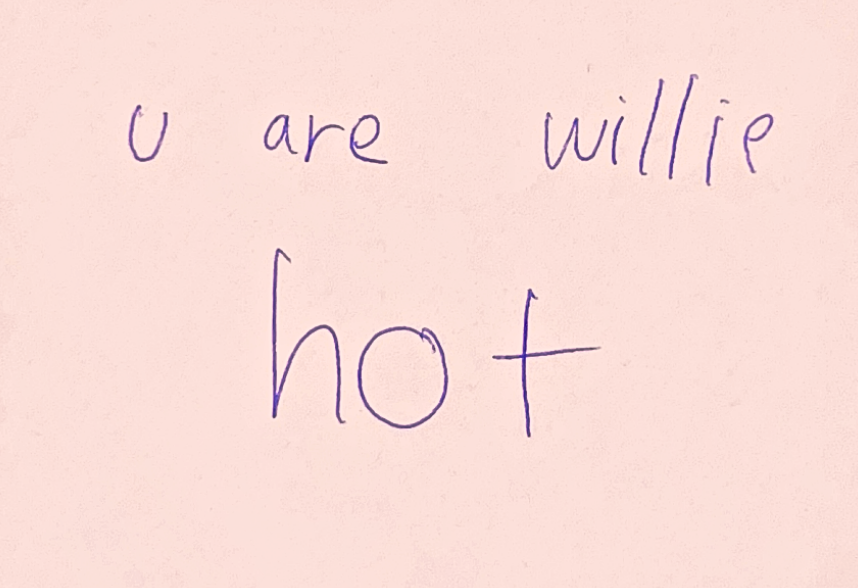 u are willie
hot